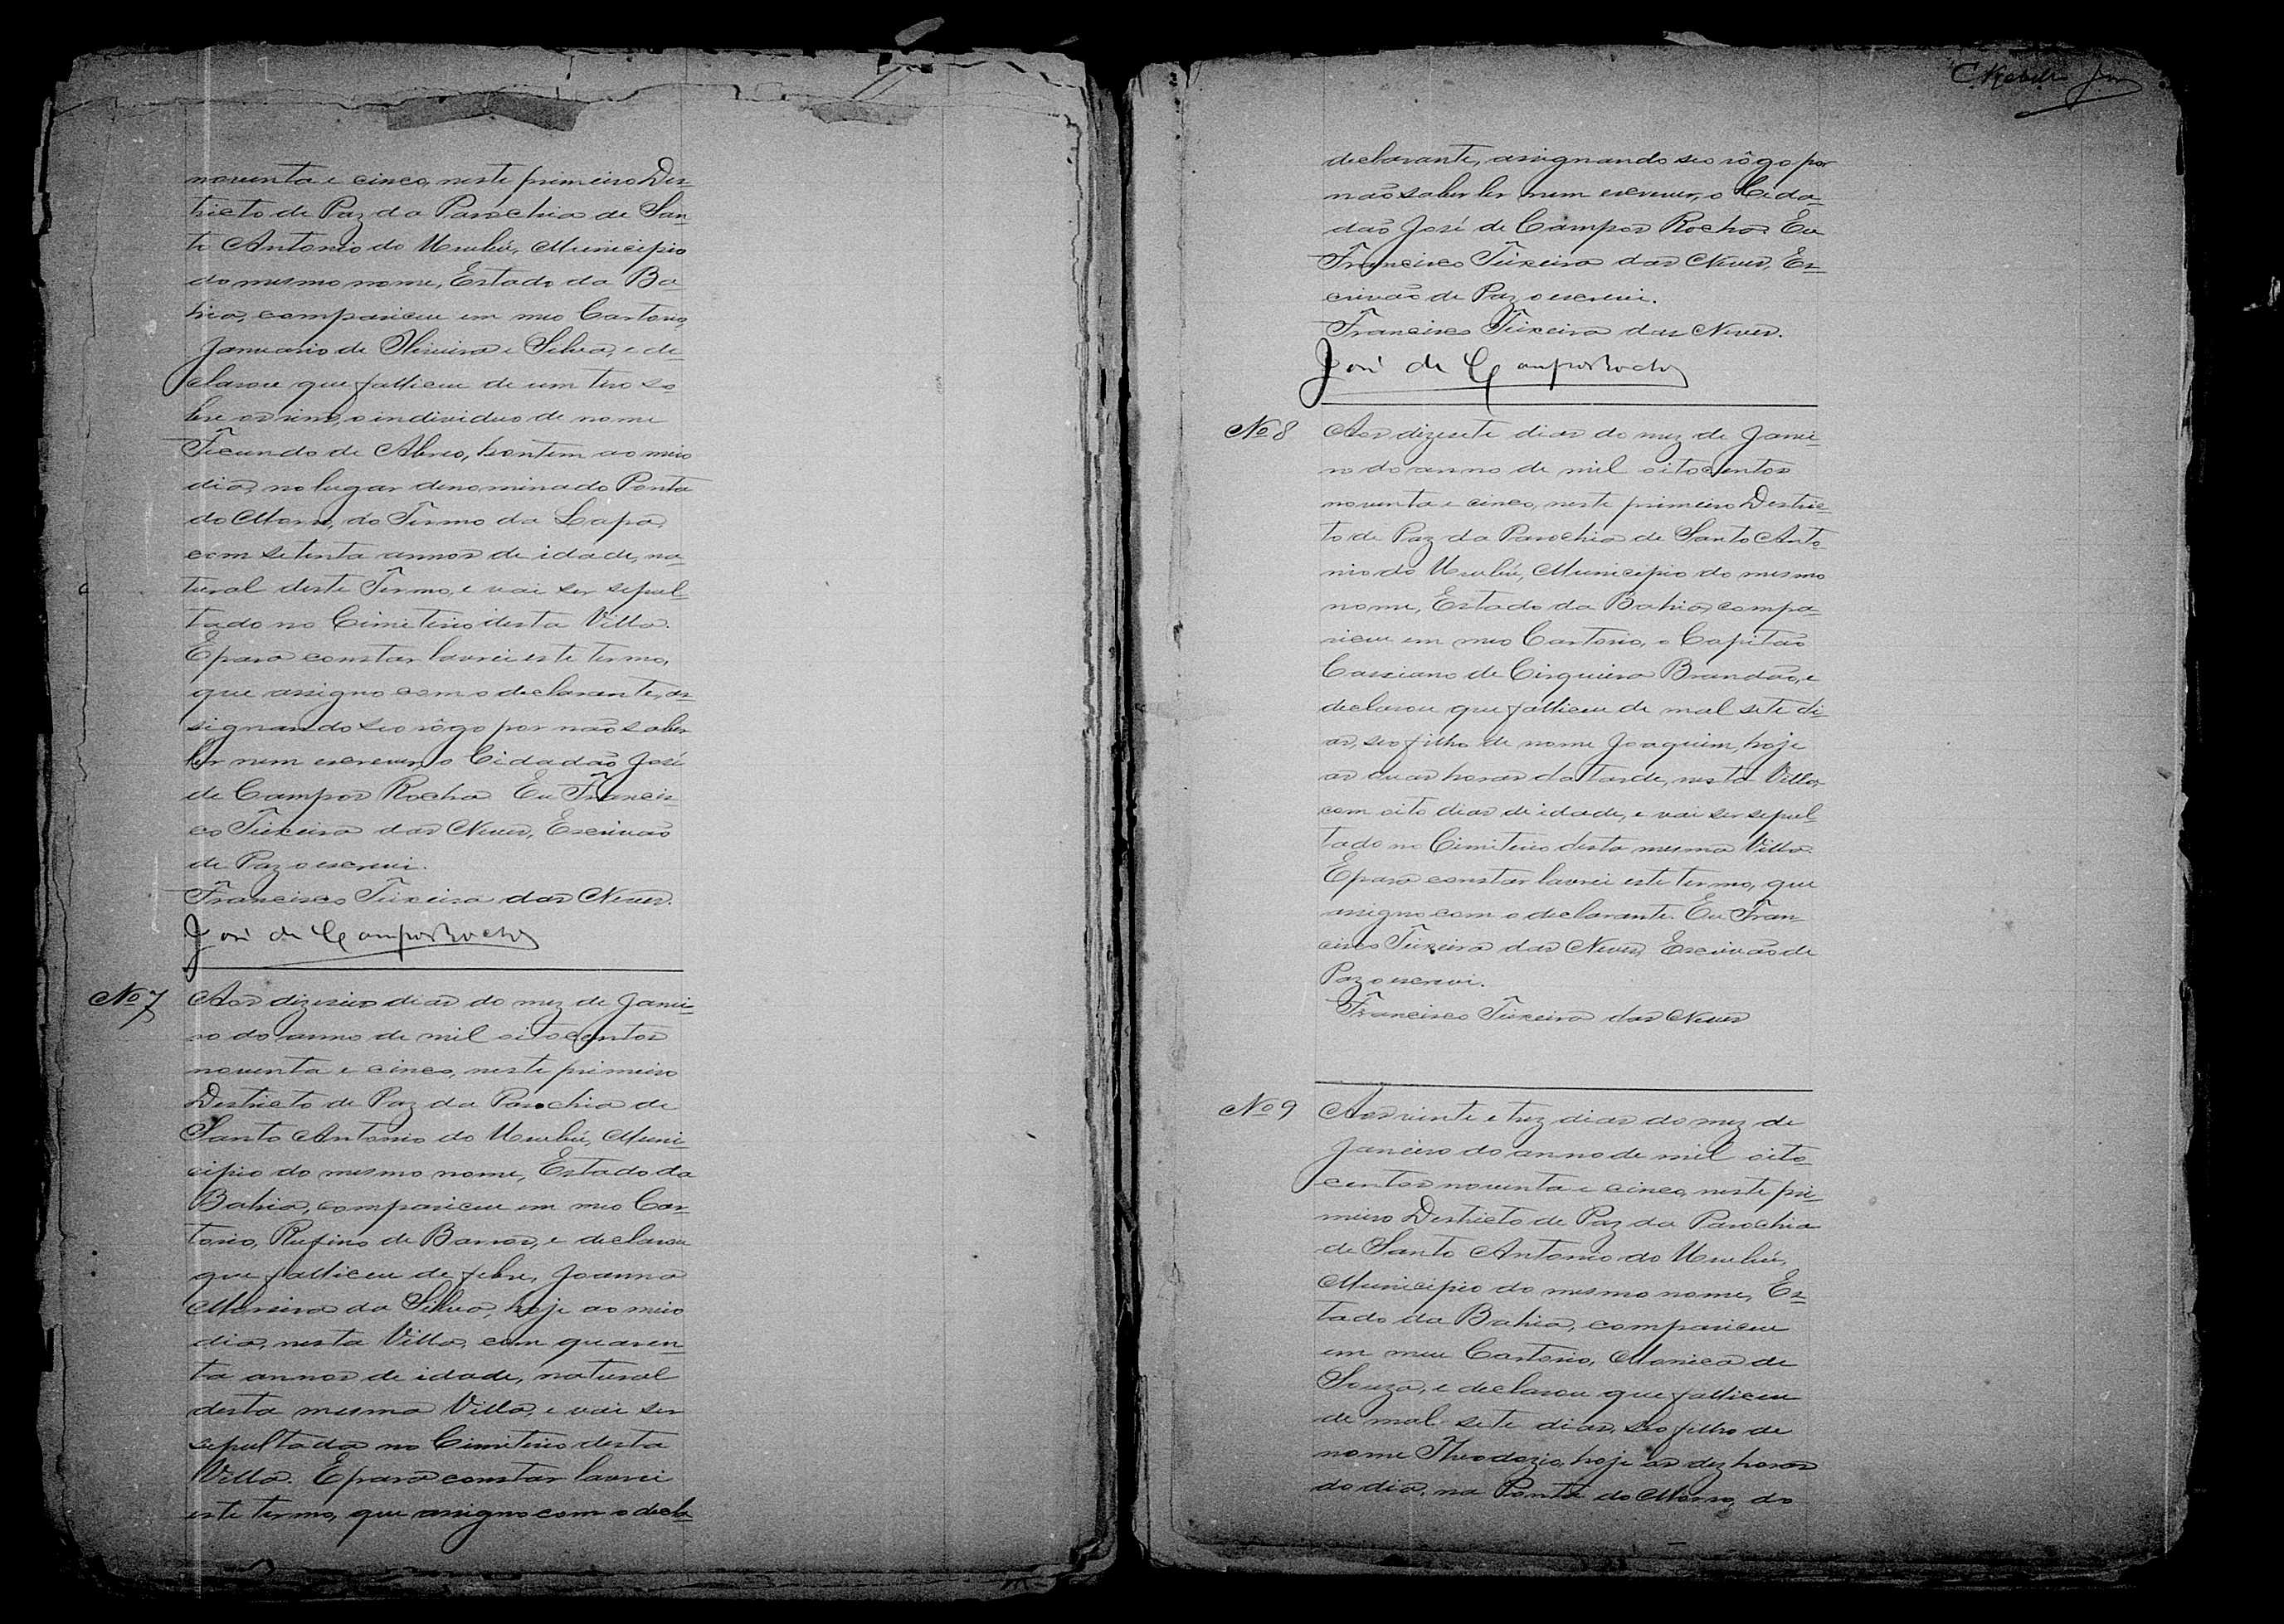 noventa e cinco, neste primeiro Des-
tricto de Paz da Parochia de San
to Antonio do Urubú, Municipio
do mesmo nome, Estado da Ba
hia, compareceu em meo Cartorio,
Januario de Oliveira e Silva, e de
clarou que falleceu de um tiro so
bre os rins, o individuo de nome
Fecundo de Abreo, hontem ao meio
dia, no lugar denominado Ponta
do Morro, do Termo da Lapa,
com setenta annos de idade, na-
tural deste Termo, e vai ser sepul-
tado no Cimiterio desta Villa.
E para constar lavrei este termo,
que assigno com o declarante, as
signando seo rôgo por não saber
ler nem escrever, o Cidadão José
de Campos Rocha Eu Francis-
co Teixeira das Neves, Escrivão
de Paz o escrevi.
Francisco Teixeira das Neves.
José de Campos Rocha
No 7 Aos dizeseis dias do mez de Janei-
ro do anno de mil oitocentos
noventa e cinco, neste primeiro
Destricto de Paz da Parochia de
Santo Antonio do Urubú, Muni-
cipio do mesmo nome, Estado da
Bahia, compareceu em meo Car-
torio, Rufino de Barros, e declarou
que falleceu de febre, Joanna
Moreira da Silva, hoje ao meio
dia, nesta Villa, com quaren-
ta annos de idade, natural
desta mesma Villa, e vai ser
sepultada no Cimiterio desta
Villa. E para constar lavrei
este termo, que assigno com o decla-
declarante, assignando seo rôgo por
não saber ler nem escrever, o Cida-
dão José de Campos Rocha Eu
Francisco Teixeira das Neves, Es-
crivão de Paz o escrevi.
Francisco Teixeira das Neves.
José de Campos Rocha
No 8 Aos dizesete dias do mez de Janei-
ro do anno de mil oitocentos
noventa e cinco, neste primeiro Destric-
to de Paz da Parochia de Santo Anto-
nio do Urubú, Municipio do mesmo
nome, Estado da Bahia, compa-
receu em meo Cartorio, o Capitão
Cassiano de Cirqueira Brandão, e
declarou que falleceu de mal sete di-
as, seo filho de nome Joaquim, hoje
as duas horas da tarde, nesta Villa,
com oito dias de idade, e vai ser sepul-
tado no Cimiterio desta mesma Villa.
E para constar lavrei este termo, que
assigno com o declarante. Eu Fran-
cisco Teixeira das Neves, Escrivão de
Paz o escrevi.
Francisco Teixeira das Neves
No 9 Aos vinte e trez dias do mez de
Janeiro do anno de mil oito-
centos noventa e cinco, neste pri-
meiro Destricto de Paz da Parochia
de Santo Antonio do Urubú,
Municipio do mesmo nome, Es-
tado da Bahia, compareceu
em meu Cartorio, Monica de
Souza, e declarou que falleceu
de mal sete dias, seo filho de
nome Theodozio, hoje as dez horas
do dia, na Ponta do Morro, do